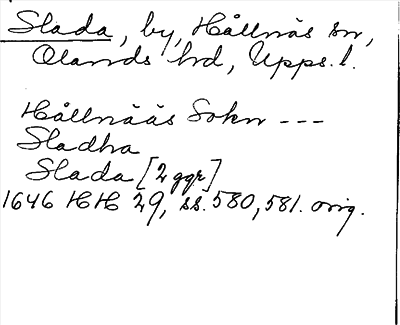 Slada, by, Hållnäs sn,
Olands hd, Upps. l.
Hållnääs Sokn ---
Sladha
Slada [2 ggr]
1646 HH 29, ss. 580, 581. orig.